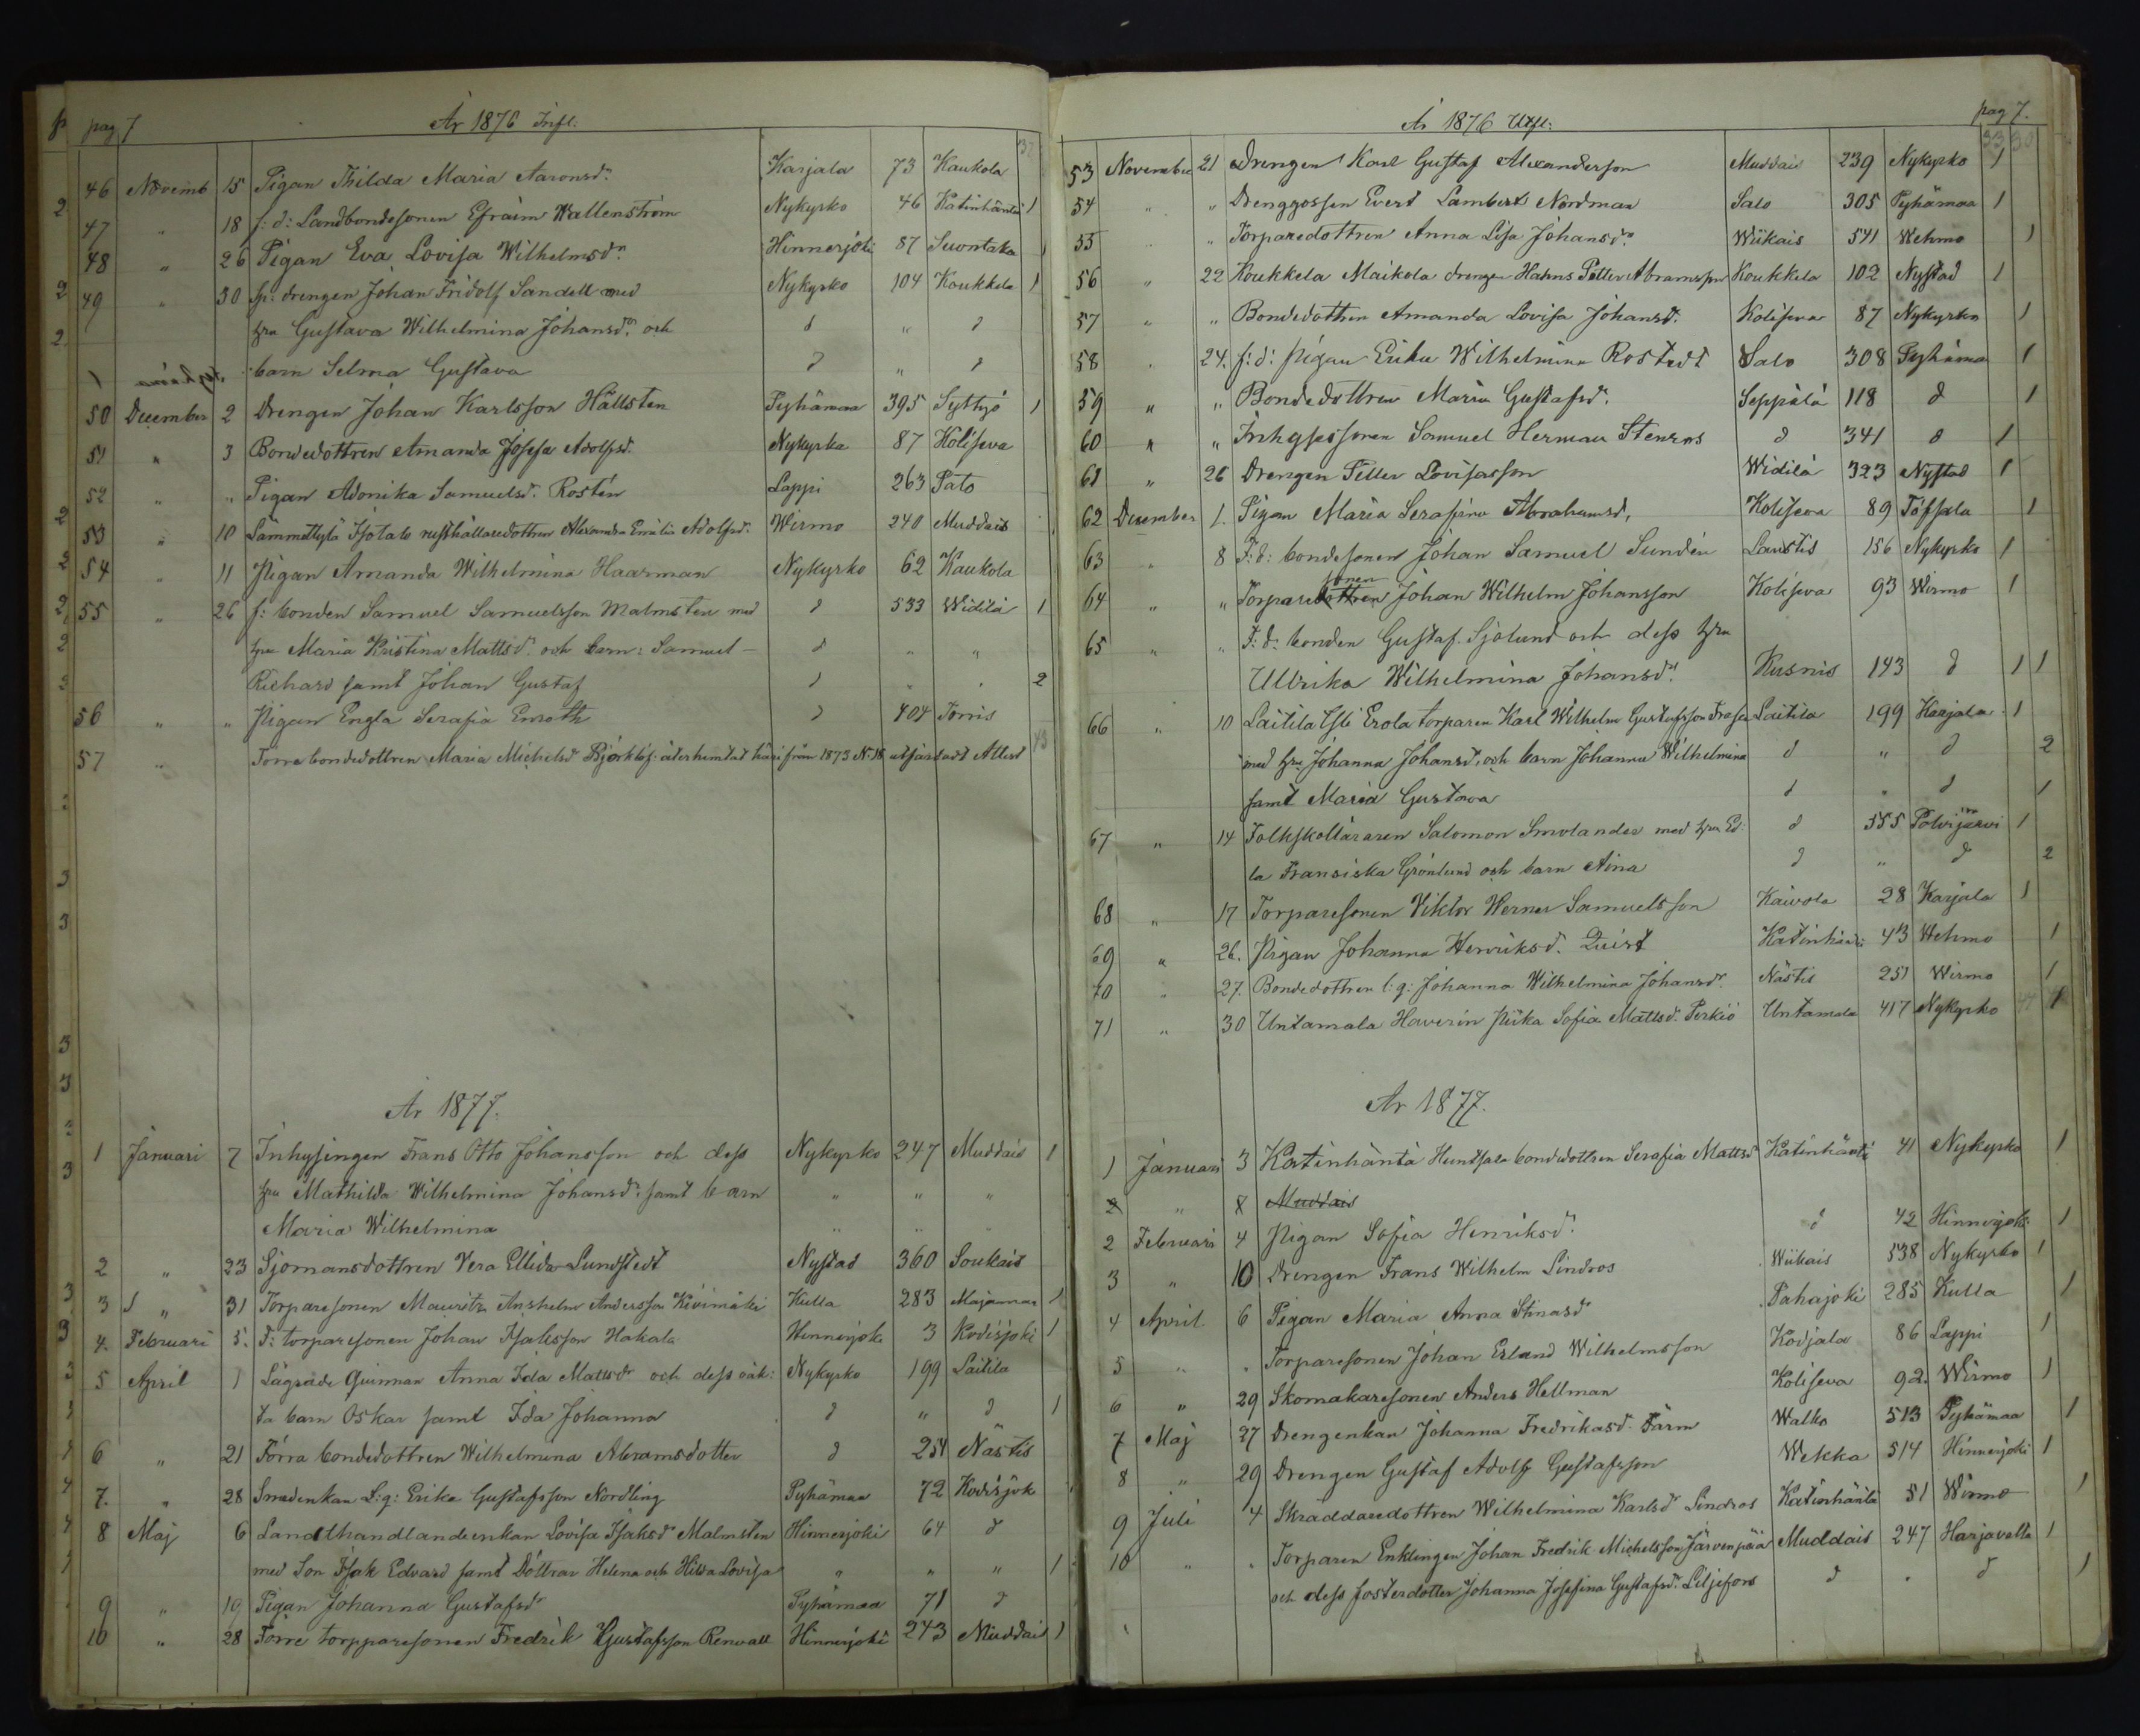 pag 7 År 1876 Infl:
46 Novemb 15 Pigan Thilda Maria Aaronsdr Karjala 73 Kaukola
47 " 18 f: d: Landbondesonen Efraim Wallenström Nykyrko 46 Katinhänta 1
48 " 26 Pigan Eva Lovisa Wilhelmsdr Hinnerjoki 87 Suontaka 1
49 " 30 Sp: drengen Johan Fridolf Sandell med Nykyrko 104 Koukkela 1
hru Gustava Wilhelmina Johansdr och d " d
barn Selma Gustava d " d
50 December 2 Drengen Johan Karlsson Hällsten Pyhämaa 395 Syttyö 1
51 " 3 Bondedottren Amanda Josefa Adolfsd. Nykyrka 87 Koliseva
52 " " Pigan Adonika Samuelsd. Rostén Lappi 263 Pato
53 " 10 Lammittylä Isotalo rusthållaredottren Alexandra Emilia Adolfsd. Wirmo 240 Muddais
54 " 11 Pigan Amanda Wilhelmina Haarman Nykyrko 62 Kaukola
55 " 26 f: bonden Samuel Samuelsson Malmsten med d 533 Widilä 1
hru Maria Kristina Mattsdr och barn: Samuel- d " "
Richard samt Johan Gustaf d " " 2
56 " " Pigan Engla Serafia Enroth d 404 Torris
57 " Förra bondedottren Maria Michelsd Björklöf: återhemtat härifrån 1875 N:18 utfärdadt Attest
År 1877.
1 Januari 7 Inhysingen Frans Otto Johansson och dess Nykyrko 247 Muddais 1
hru Mathilda Wilhelmina Johansdr samt barn " " "
Maria Wilhelmina " " "
2 " 23 Sjömansdottren Vera Ellida Lundstedt Nystad 360 Soukais
3 " 31 Torparesonen Mauritz Anshelm Andersson Kivimäki Kulla 283 Majamaa 1
4. Februari 5. F: torparesonen Johan Isaksson Hakala Hinnerjoki 3 Kodisjoki 1
5 April 1 Lägrade Quinnan Anna Ida Mattsdr och dess oäk: Nykyrko 199 Laitila
ta barn Oskar samt Ida Johanna d " d 1
6 " 21 Förra bondedottren Wilhelmina Abramsdotter d 254 Nästis
7. " 28 Smedenkan L:g: Erika Gustafsson Nordling Pyhämaa 72 Kodisjok
8 Maj 6 Landthandlandeenkan Lovisa Isaksdr Malmsten Hinnerjoki 64 d
med Son Isak Edvard samt Döttrar Helena och Hilda Lovisa " " " 1
9 " 19 Pigan Johanna Gustafsdr Pyhämaa 71 d
10 " 28 Förre torpparesonen Fredrik Gustafsson Renwall Hinnerjoki 243 Muddais 1
År 1876 Utfl: pag 7.
53 November 21 Drengen Karl Gustaf Alexandersson Muddais 239 Nykyrko 1
54 " " Drenggossen Evert Lambert Nordman Salo 305 Pyhämaa 1
55 " " Torparedottren Anna Lisa Johansdr Wiikais 541 Wehmo 1
56 " 22 Koukkela Maikola drengen Hahns Petter Abramsson Koukkela 102 Nystad 1
57 " " Bondedottren Amanda Lovisa Johansd. Koliseva 87 Nykyrko 1
58 " 24. f: d: pigan Erika Wilhelmina Rostedt Salo 308 Pyhämaa 1
59 " " Bondedottren Maria Gustafsd. Seppälä 118 d 1
60 " " Inhysessonen Samuel Herman Stenros d 341 d 1
61 " 26 Drengen Petter Lovisasson Widilä 323 Nystad 1
62 December 1. Pigan Maria Serafina Abrahamsd. Koliseva 89 Töfsala 1
63 " 8 F: d: bondesonen Johan Samuel Sundén Laustis 156 Nykyrko 1
64 " " Torparesonen Johan Wilhelm Johansson Koliseva 93 Wirmo 1
65 " " F: d: bonden Gustaf Sjölund och dess hru
Ulrika Wilhelmina Johansdr Kusnis 143 d 1 1
66 " 10 Laitila Ylli Erola torparen Karl Wilhelm Gustafsson Laitila 199 Karjala 1
med hru Johanna Johansd. och barn Johanna Wilhelmina d " d 2
samt Maria Gustava d " d 1
67 " 14 Folkskolläraren Salomon Smolander med hru Ed: d 555 Polvijärvi 1
la Fransiska Grönlund och barn Aina d " d 2
68 " 17 Torparesonen Viktor Verner Samuelsson Kaivola 28 Karjala 1
69 " 26. Pigan Johanna Henriksd. Quist Katinhänta 43 Wehmo 1
70 " 27. Bondedottren l: g: Johanna Wilhelmina Johansdr Nästis 251 Wirmo 1
71 " 30 Untamala Haverin Piika Sofia Mattsd. Perkiö Untamala 417 Nykyrko 1
År 1877.
1 Januari 3 Katinhänta Huntsala bondedottren Serafia Mattsd Katinhänta 41 Nykyrko 1
2 " 8 Muddais
2 Februari 4 Pigan Sofia Henriksdr d 42 Hinnerjoki 1
3 " 10 Drengen Frans Wilhelm Lindros Wiikais 538 Nykyrko 1
4 April 6 Pigan Maria Anna Stinasdr Pahajoki 285 Kulla 1
5 " " Torparesonen Johan Erland Wilhelmsson Kodjala 86 Lappi 1
6 " 29 Skomakaresonen Anders Hellman Koliseva 92. Wirmo 1
7 Maj 27 Drengenkan Johanna Fredrikasd. Färm Walko 513 Pyhämaa 1
8 " 29 Drengen Gustaf Adolf Gustafsson Wekka 514 Hinnerjoki 1
9 Juli 4 Skräddaredottren Wilhelmina Karlsdr Lindros Katinhänta 51 Wirmo 1
10 " " Torparen Enklingen Johan Fredrik Michelsson Järvenpää Muddais 247 Harjavalla 1
och dess fosterdotter Johanna Josefina Gustafsd. Liljefors d " d 1